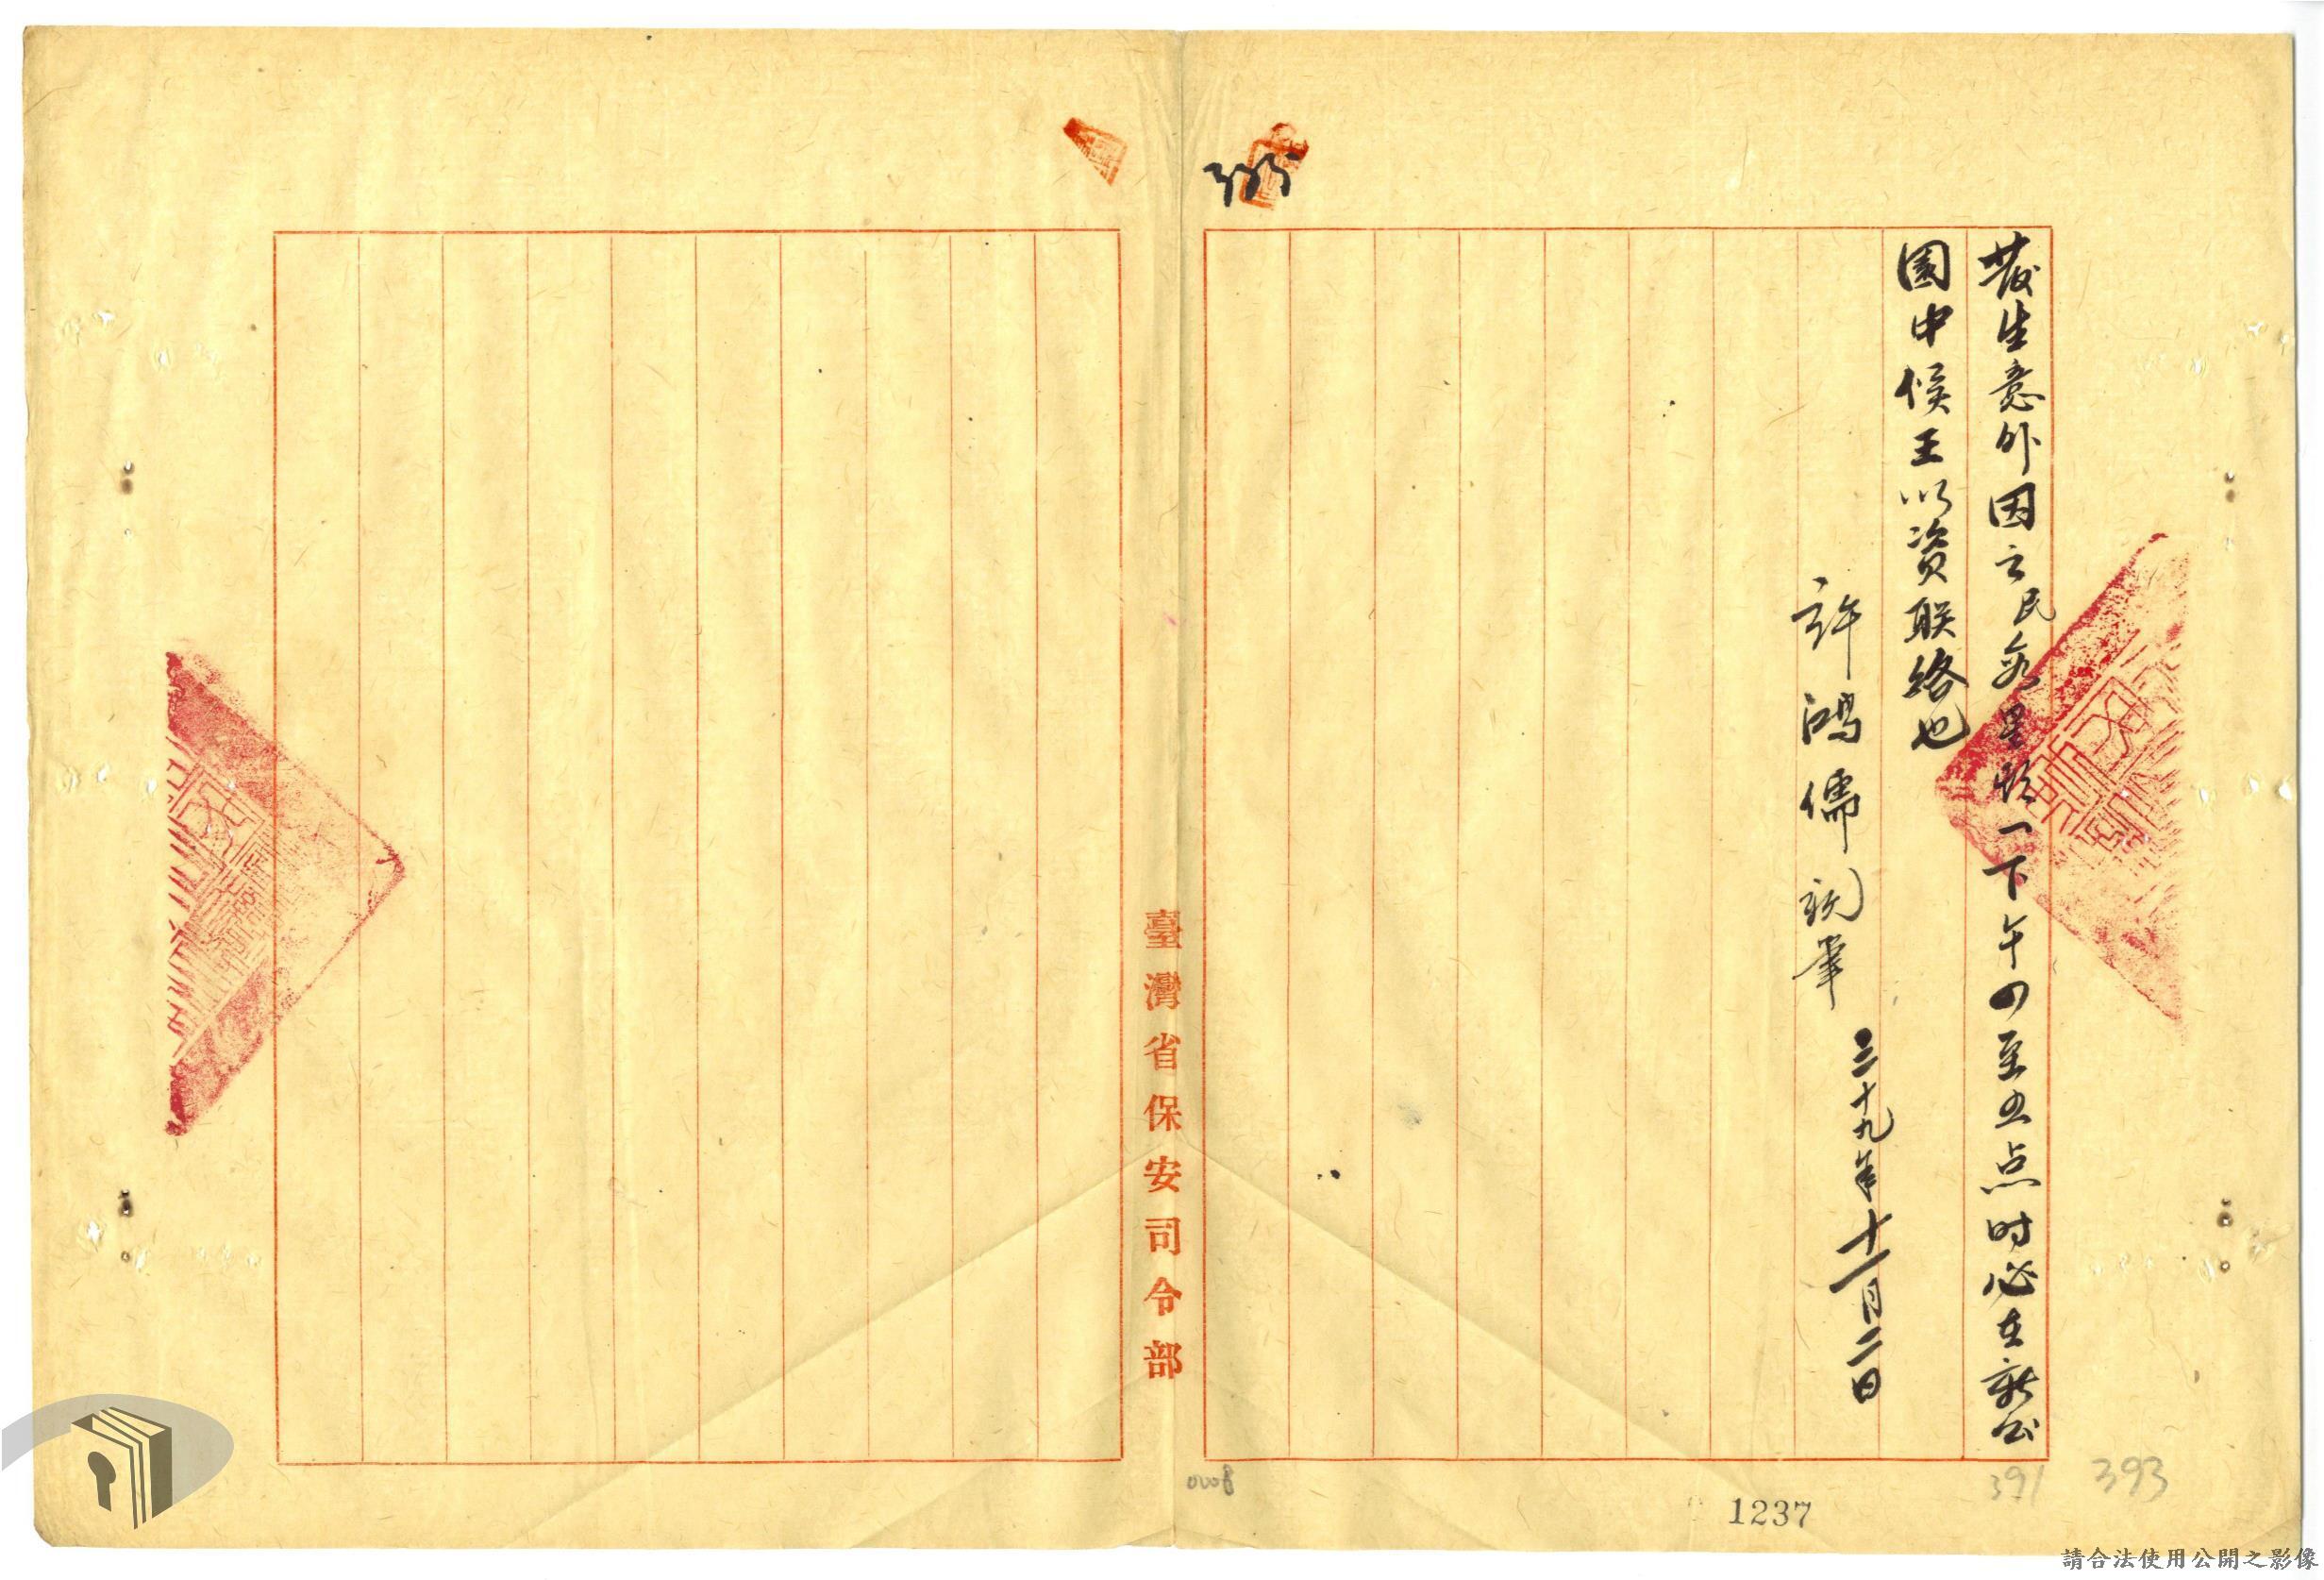 發生意外因之民每星期一下午四至五点时必在新公
園中候王以资联络也
許鴻儒親筆
三十九年十一月二日
臺灣省保安司令部
0008
1237
391
393
請合法使用公開之影像